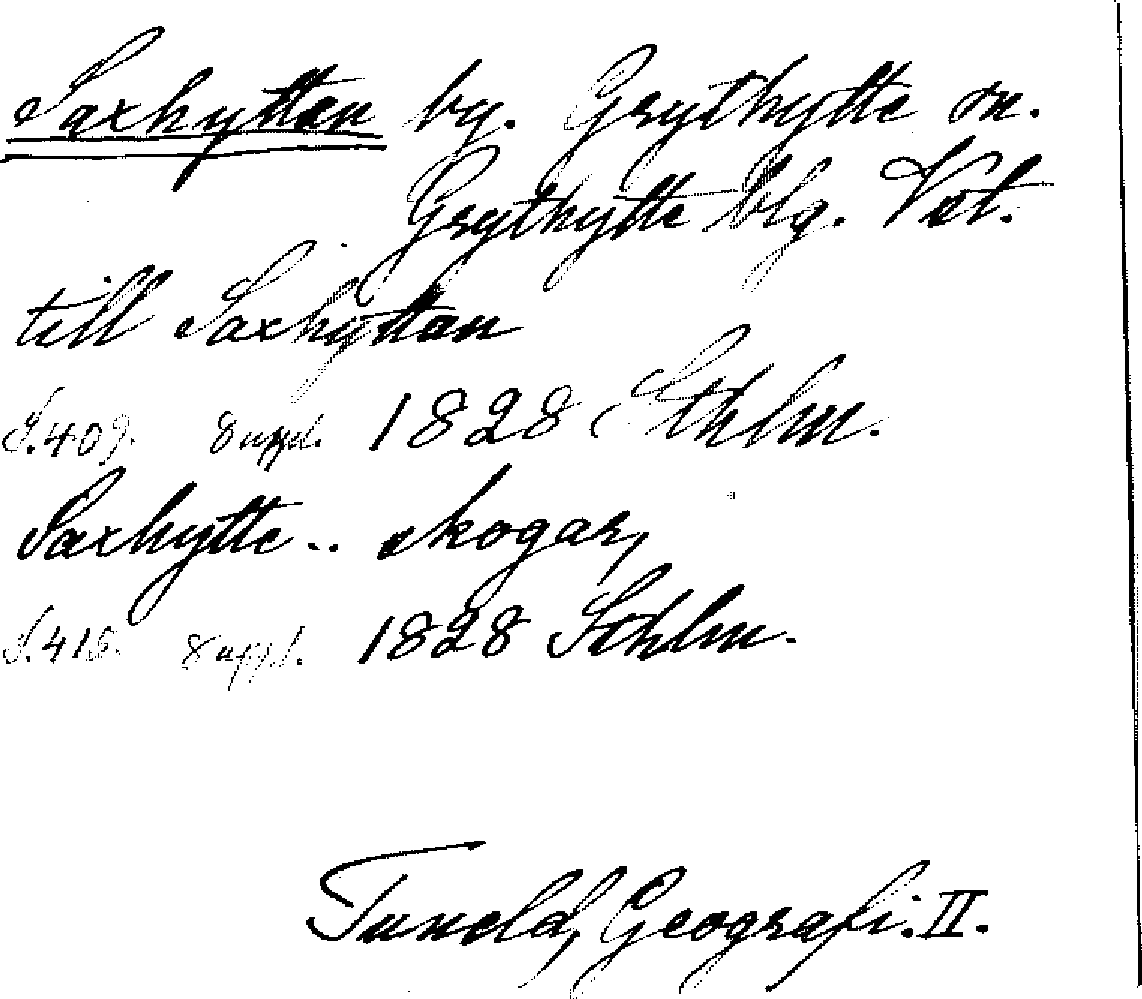 Saxhyttan by. Grythytte sn.
Grythytte blg. Vstl.
till Saxhyttan
S. 409. 8 uppl. 1828 Sthlm.
Saxhytte .. skogar,
S. 415. 8 uppl. 1828 Sthlm.
Tuneld, Geografi. II.